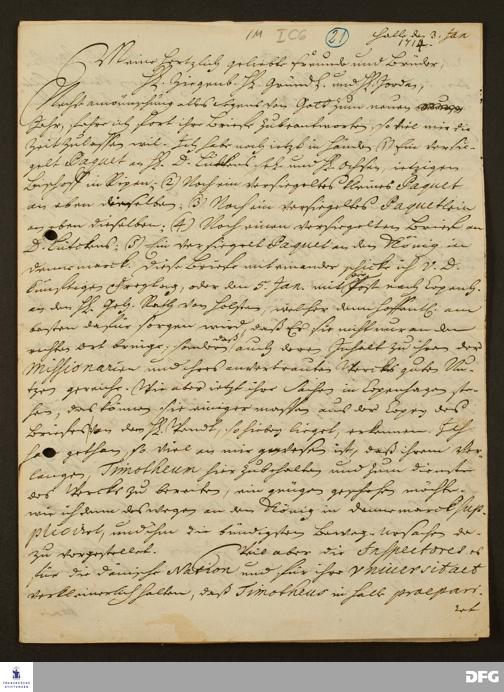 1M I C 6 21 Halle den 3. Jan
1714.
Meine Hertzlich geliebte Freunde und Brüder,
H. Ziegenb. H. Gründl. und H. Jordan,
Nechst anwünschung alles Segens von Gott zum neuen
Jahr, fahre ich fort ihre Briefe zubeantworten, so viel mir die
Zeit zulassen will. Ich habe noch jetzt in Händen, 1) Ein versie-
gelt Paquet an H. D. Lütkens sel. und H. jetzigen
Bischoff in Ripen: (2) Noch ein versiegeltes kleines Paquet
an eben dieselben: 3) Noch ein versiegeltes Paquetlein
an eben dieselben: (4) Noch einen versiegelten Brief an
D. Lütkens: (5) Ein versiegelt Paquet an den König in
Dennemarck. Diese Briefe miteinander schicke ich v. D.
künfftigen Freytag, oder den 5 Jan. mit Post nach Copenh.
an den H. Geh. Rath von Holsten, welcher denn hoffentl. am
besten dafür sorgen wird, daß Sie nicht nur an den
rechten ort kommen, sondern daß auch deren Inhalt zu ihrer der
Missionarien und ihres anvertrauten Wercks guten Nu-
tzen gereiche. Wie aber jetzt ihre Sachen in Copenhagen ste-
hen, das können sie einiger massen aus der Copey des
Briefes von den H. Wendt, so hiebey lieget, erkennen. Ich
habe gethan, so viel an mir gewesen ist, daß ihrem Ver-
langen, Timotheum hier zubehalten und zum dienste
des Wercks zu bereiten, ein genügen geschehen möchte
wie ich denn deswegen an den König in dennemarck sup-
pliciret, und ihm die bündigsten Beweg-Ursachen da-
zu vorgestellet. Weil aber die Inspectores es
für die dänische Nation und für ihre Universitaet
verkleinerlich halten, daß Timotheus in Halle praepari-
ret
FRANCKESCHE STIFTUNGEN
DFG